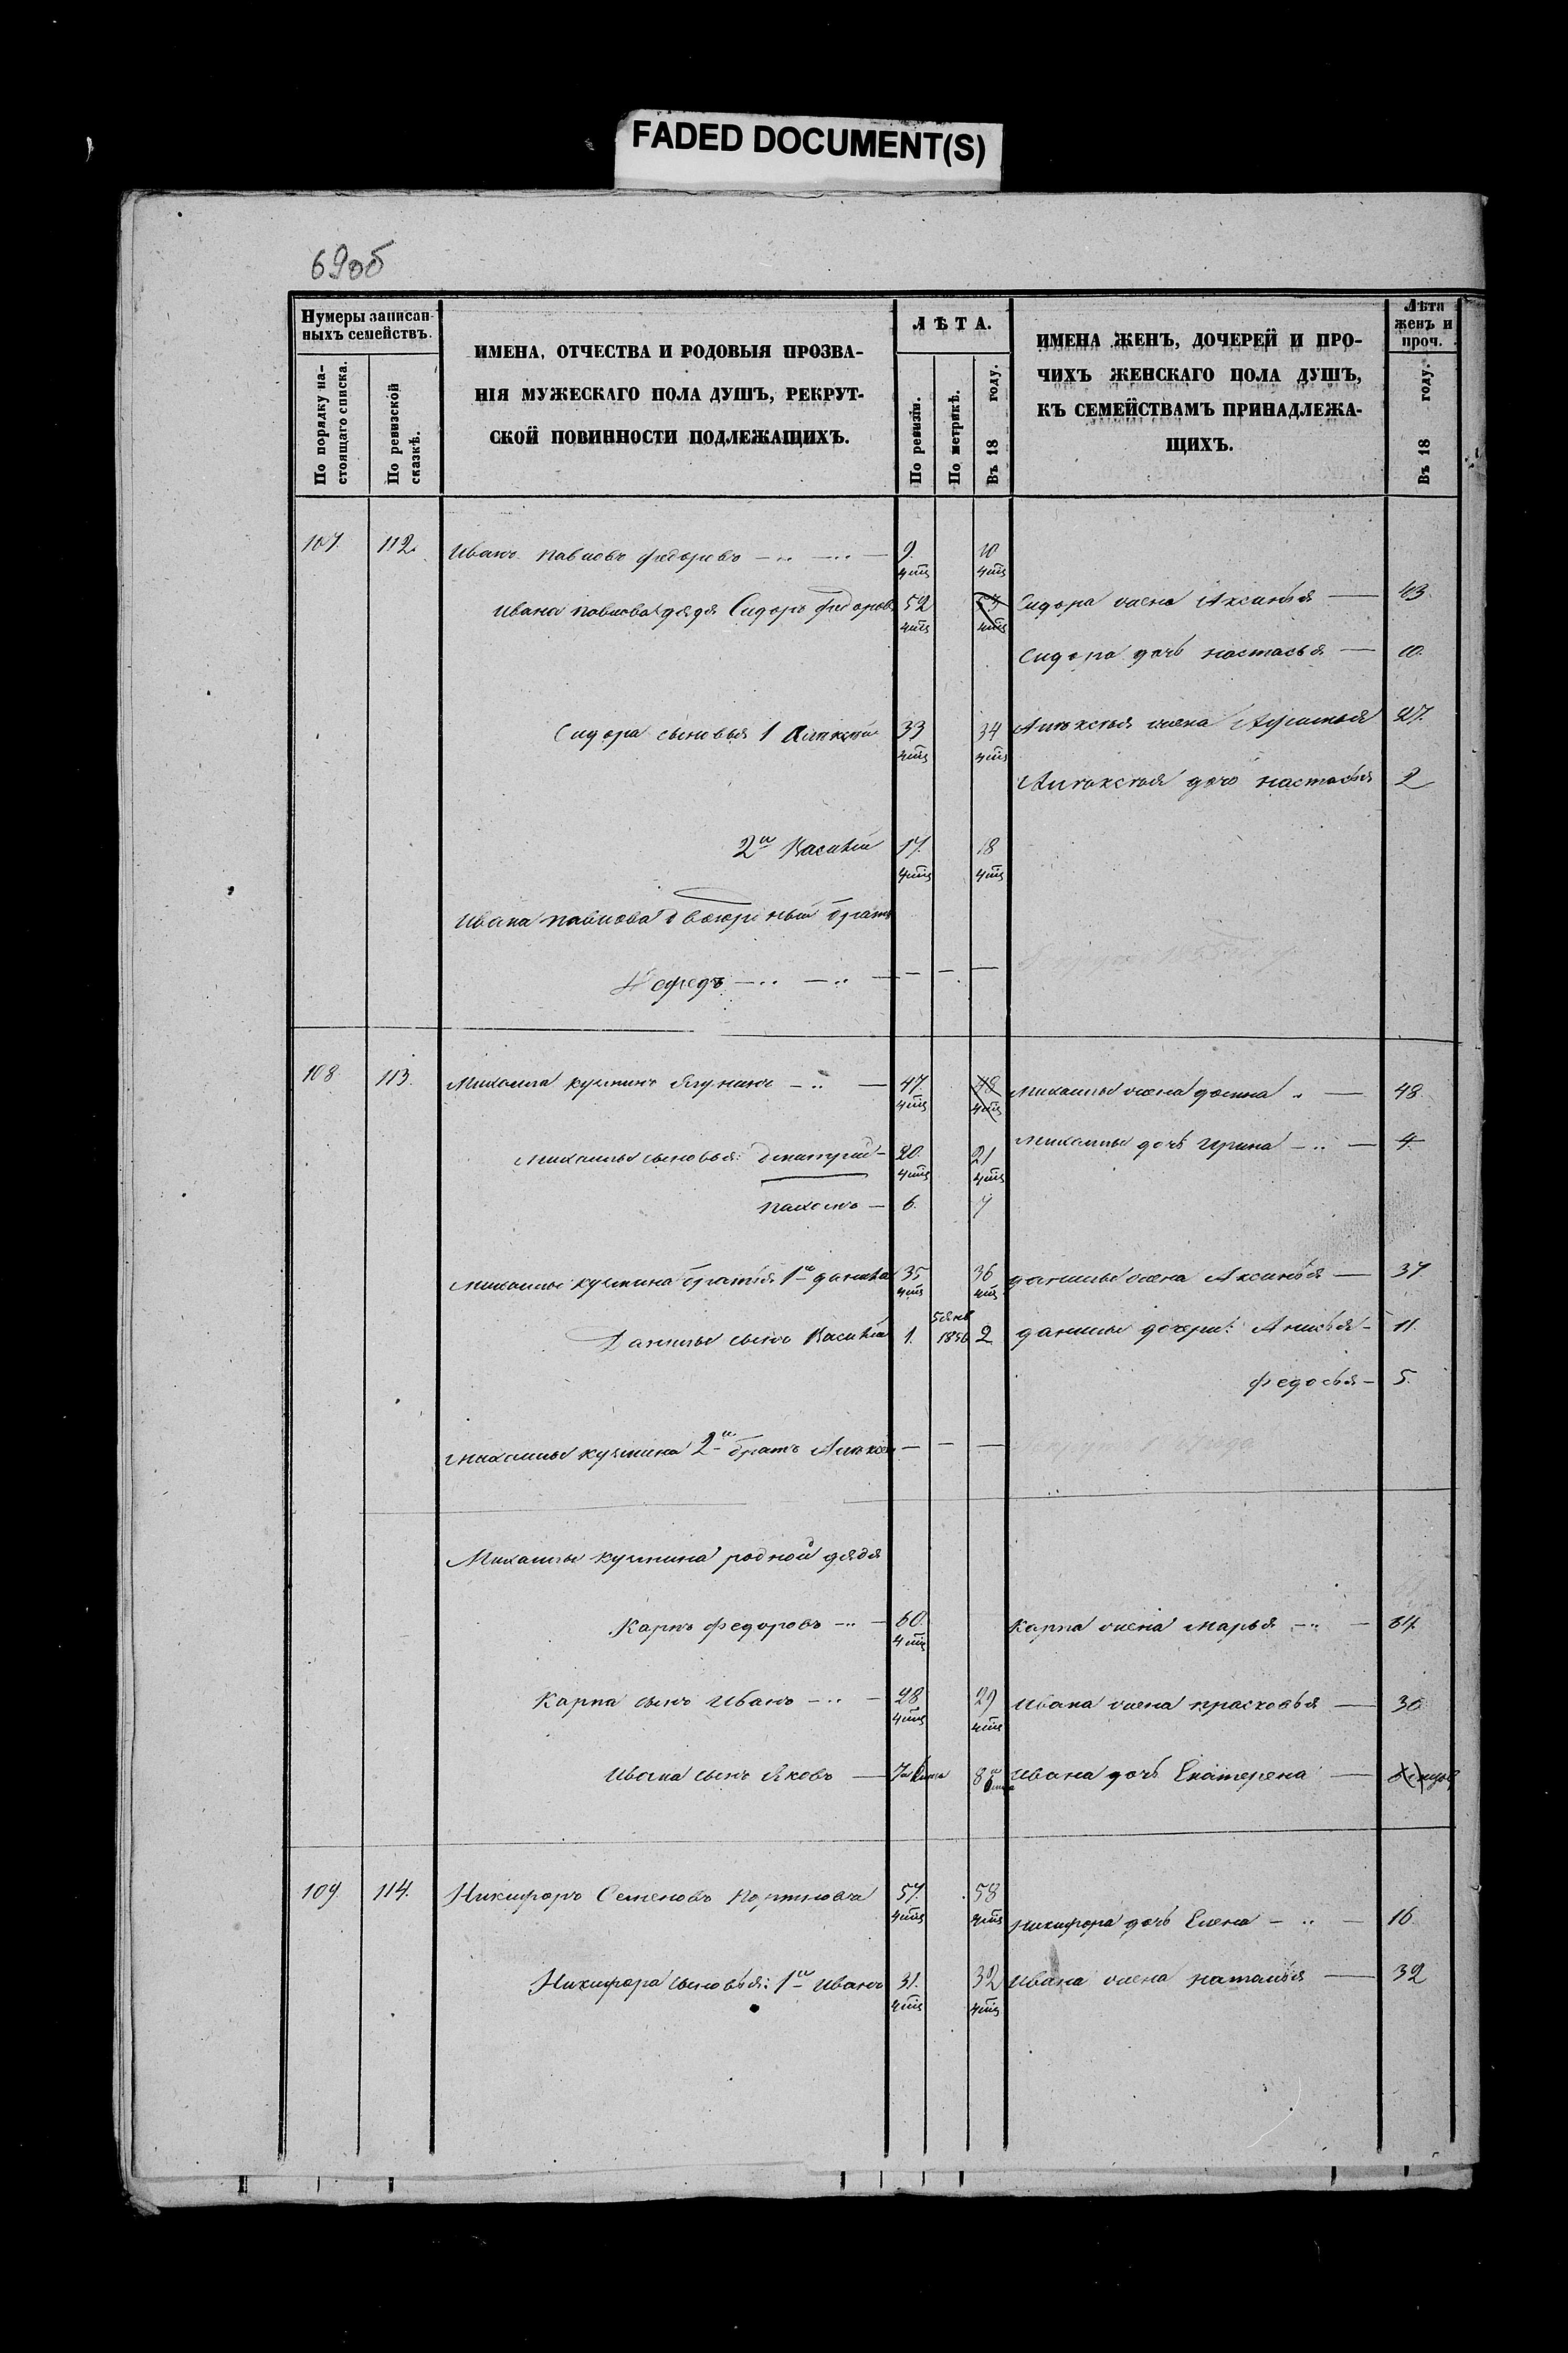 FADED DOCUMENT(S)
69об
Нумеры записан-
ныхъ семействъ.
По порядку на-
стоящаго списка.
По ревизской
сказкѣ.
ИМЕНА, ОТЧЕСТВА И РОДОВЫЯ ПРОЗВА-
НІЯ МУЖЕСКАГО ПОЛА ДУШЪ, РЕКРУТ-
СКОЙ ПОВИННОСТИ ПОДЛЕЖАЩИХЪ.
ЛѢТА.
По ревизіи.
По метрикѣ.
Въ 18 году.
ИМЕНА ЖЕНЪ, ДОЧЕРЕЙ И ПРО-
ЧИХЪ ЖЕНСКАГО ПОЛА ДУШЪ,
КЪ СЕМЕЙСТВАМЪ ПРИНАДЛЕЖА-
ЩИХЪ.
Лѣта
женъ и
проч.
Въ 18 году.
107. 112. Иванъ Павловъ Федоровъ 9. 10
Ивана Павлова дядя Сидоръ Федоровъ 52 53 Сидора жена Аксинья 43
Сидора дочь настасья 10.
Сидора сыновья 1 Алексѣй 33 34 Алексѣя жена 27.
Алексѣя дочь настасья 2
2й Василій 17. 18
Ивана Павлова двоюрный братъ
Нефедъ
108. 113. Михаила кузминъ 47. 48 Михаилы жена домна 48.
Михаилы сыновья: дмитрий 20. 21 Михаилы дочь Ирина 4.
пахомъ 6. 7
Михаилы кузмина братья 1й данила 35 36 данилы жена Аксинья 37.
Данилы сынъ Василій 1. 5 янв 1856 2 данилы дочери: Анисья 11
федосья 5.
михаилы кузмина 2й братъ Алексѣй
Михаилы кузмина родной дядя
Карпъ федоровъ 60. карпа жена марья
Карпа сынъ Иванъ 28 29 Ивана жена прасковья 30
Ивана сынъ Яковъ Ивана дочь Екатерена
109. 114. Никифоръ Семеновъ 57. 58
Никифора дочь Елена 16.
Никифора сыновья: 1й Иванъ 31. 32 Ивана жена наталья 32